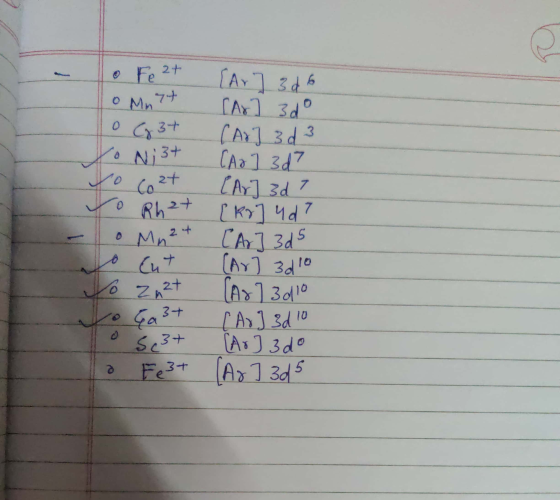 - o Fe²⁺ [Ar] 3d⁶
o Mn⁷⁺ [Ar] 3d⁰
o Cr³⁺ [Ar] 3d³
✓ o Ni³⁺ [Ar] 3d⁷
✓ o Co²⁺ [Ar] 3d⁷
✓ o Rh²⁺ [Kr] 4d⁷
- o Mn²⁺ [Ar] 3d⁵
✓ o Cu⁺ [Ar] 3d¹⁰
✓ o Zn²⁺ [Ar] 3d¹⁰
✓ o Ga³⁺ [Ar] 3d¹⁰
o Sc³⁺ [Ar] 3d⁰
o Fe³⁺ [Ar] 3d⁵